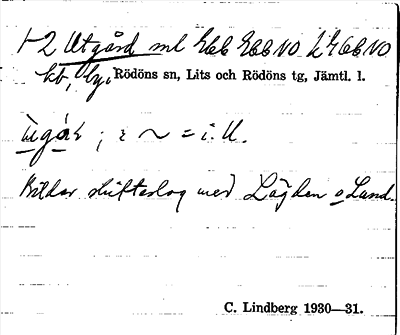 1-2 Utgård ml 26b 26b NO 27 6b NO
kt, by, Rödöns sn, Lits och Rödöns tg, Jämtl. l.
ùgá̱r ; i ~ = i U.
Bildar skifteslag med Lägden o Land.
C. Lindberg 1930—31.